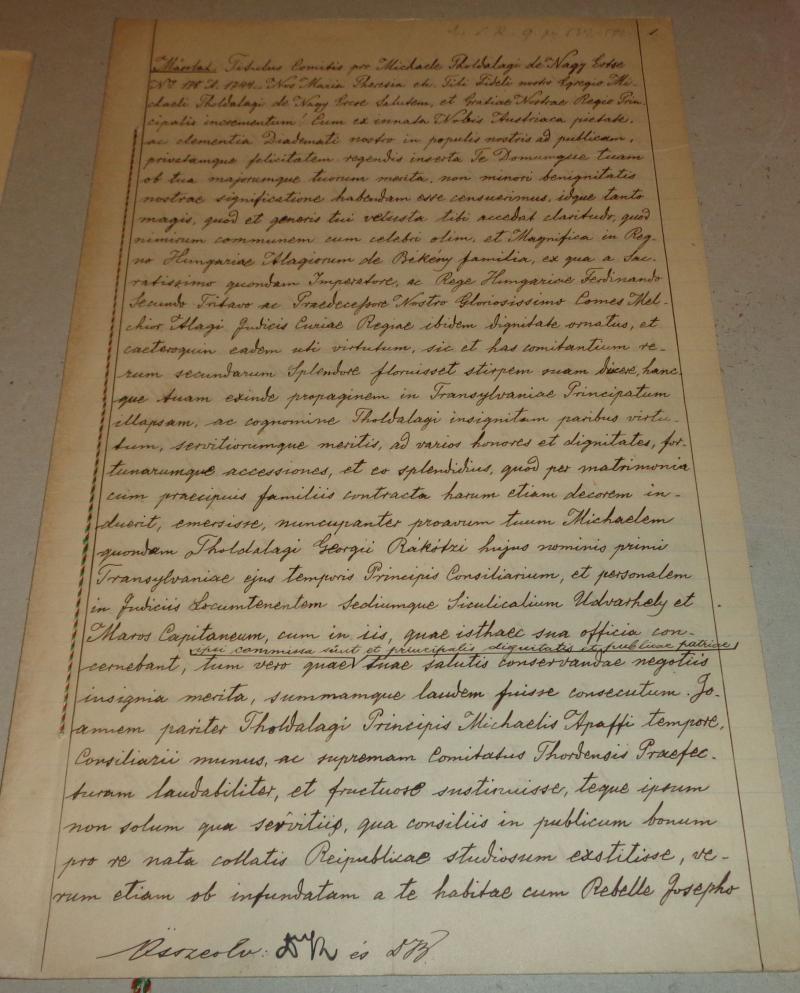 1
Másolat. Titulus Comitis pro Michaele Tholdalagi de Nagy Ertse
No 178 A. 1744. Nos Maria Theresia etc. Tibi Fideli nostro Egregio Mi-
chaeli Tholdalagi de Nagy Ercse Salutem, et Gratiae Nostrae Regio Prin-
cipalis incrementum! Cum ex innata Nobis Austriaca pietate,
ac clementia Diademati nostro in populis nostris ad publicam,
privatamque felicitatem regendis inserta Te Domumque tuam
ob tua majorumque tuorum merita, non minori benignitatis
nostrae significatione habendam esse censuerimus, idque tanto
magis, quod et generis tui vetusta tibi accedat claritudo, quod
nimirum communem cum celebri olim, et Magnifica in Reg-
no Hungariae Alagiorum de Békény familia, ex qua a Sac-
ratissimo quondam Imperatore, ac Rege Hungariae Ferdinando
Secundo Tritavo ac Praedecessore Nostro Gloriosissimo Comes Mel-
chior Alagi Judicis Curiae Regiae ibidem dignitate ornatus, et
caeteroquin eadem uti virtutum, sic et has comitantium re-
rum secundarum Splendore floruisset stirpem suam dicere, hanc
que tuam exinde propaginem in Transylvaniae Principatum
illapsam, ac cognomine Tholdalagi insignitam paribus virtu-
tum, servitiorumque meritis, ad varios honores et dignitates, for-
tunarumque accessiones, et eo splendidius, quod per matrimonia
cum praecipuis familiis contracta harum etiam decorem in-
duerit, emersisse, nuncupanter proavum tuum Michaelem
quondam Tholdalagi Georgii Rákótzi hujus nominis primi
Transylvaniae ejus temporis Principis Consiliarium, et personalem
in Judiciis Locumtenentem Sediumque Siculicalium Udvarhely et
Maros Capitaneum, cum in iis, quae isthaec sua officia con-
ipsi commissa sunt et principalis dignitatis et publicae patriae
cernebant, tum vero quae suae salutis conservandae negotiis
insignia merita, summamque laudem fuisse consecutum. Jo-
annem pariter Tholdalagi Principis Michaelis Apaffi tempore,
Consiliarii munus, ac supremam Comitatus Thordensis Praefec-
turam laudabiliter, et fructuose sustinuisse, teque ipsum
non solum qua servitiis, qua consiliis in publicum bonum
pro re nata collatis Reipublicae studiosum exstitisse, ve-
rum etiam ob infundatam a te habitae cum Rebelle Josepho
Összeolv: és